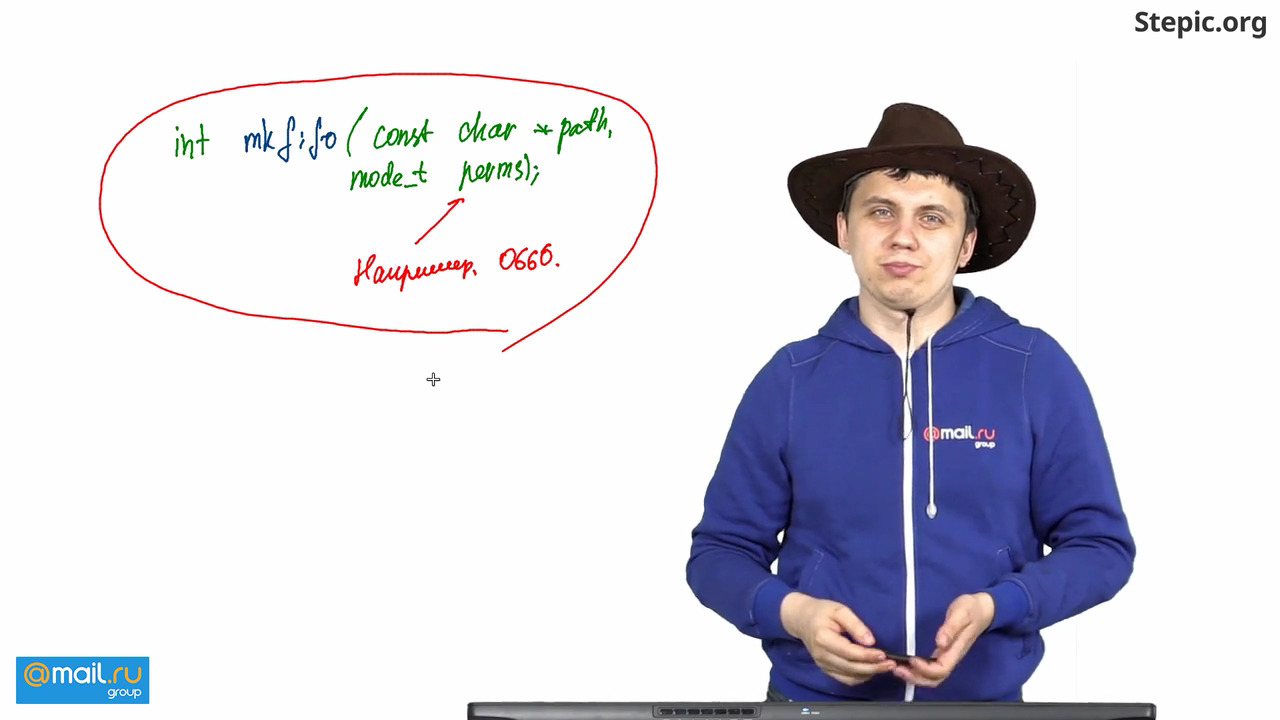 Stepic.org
int mkfifo (const char *path,
mode_t perms);
Например, 0660.
@mail.ru
group
@mail.ru
group